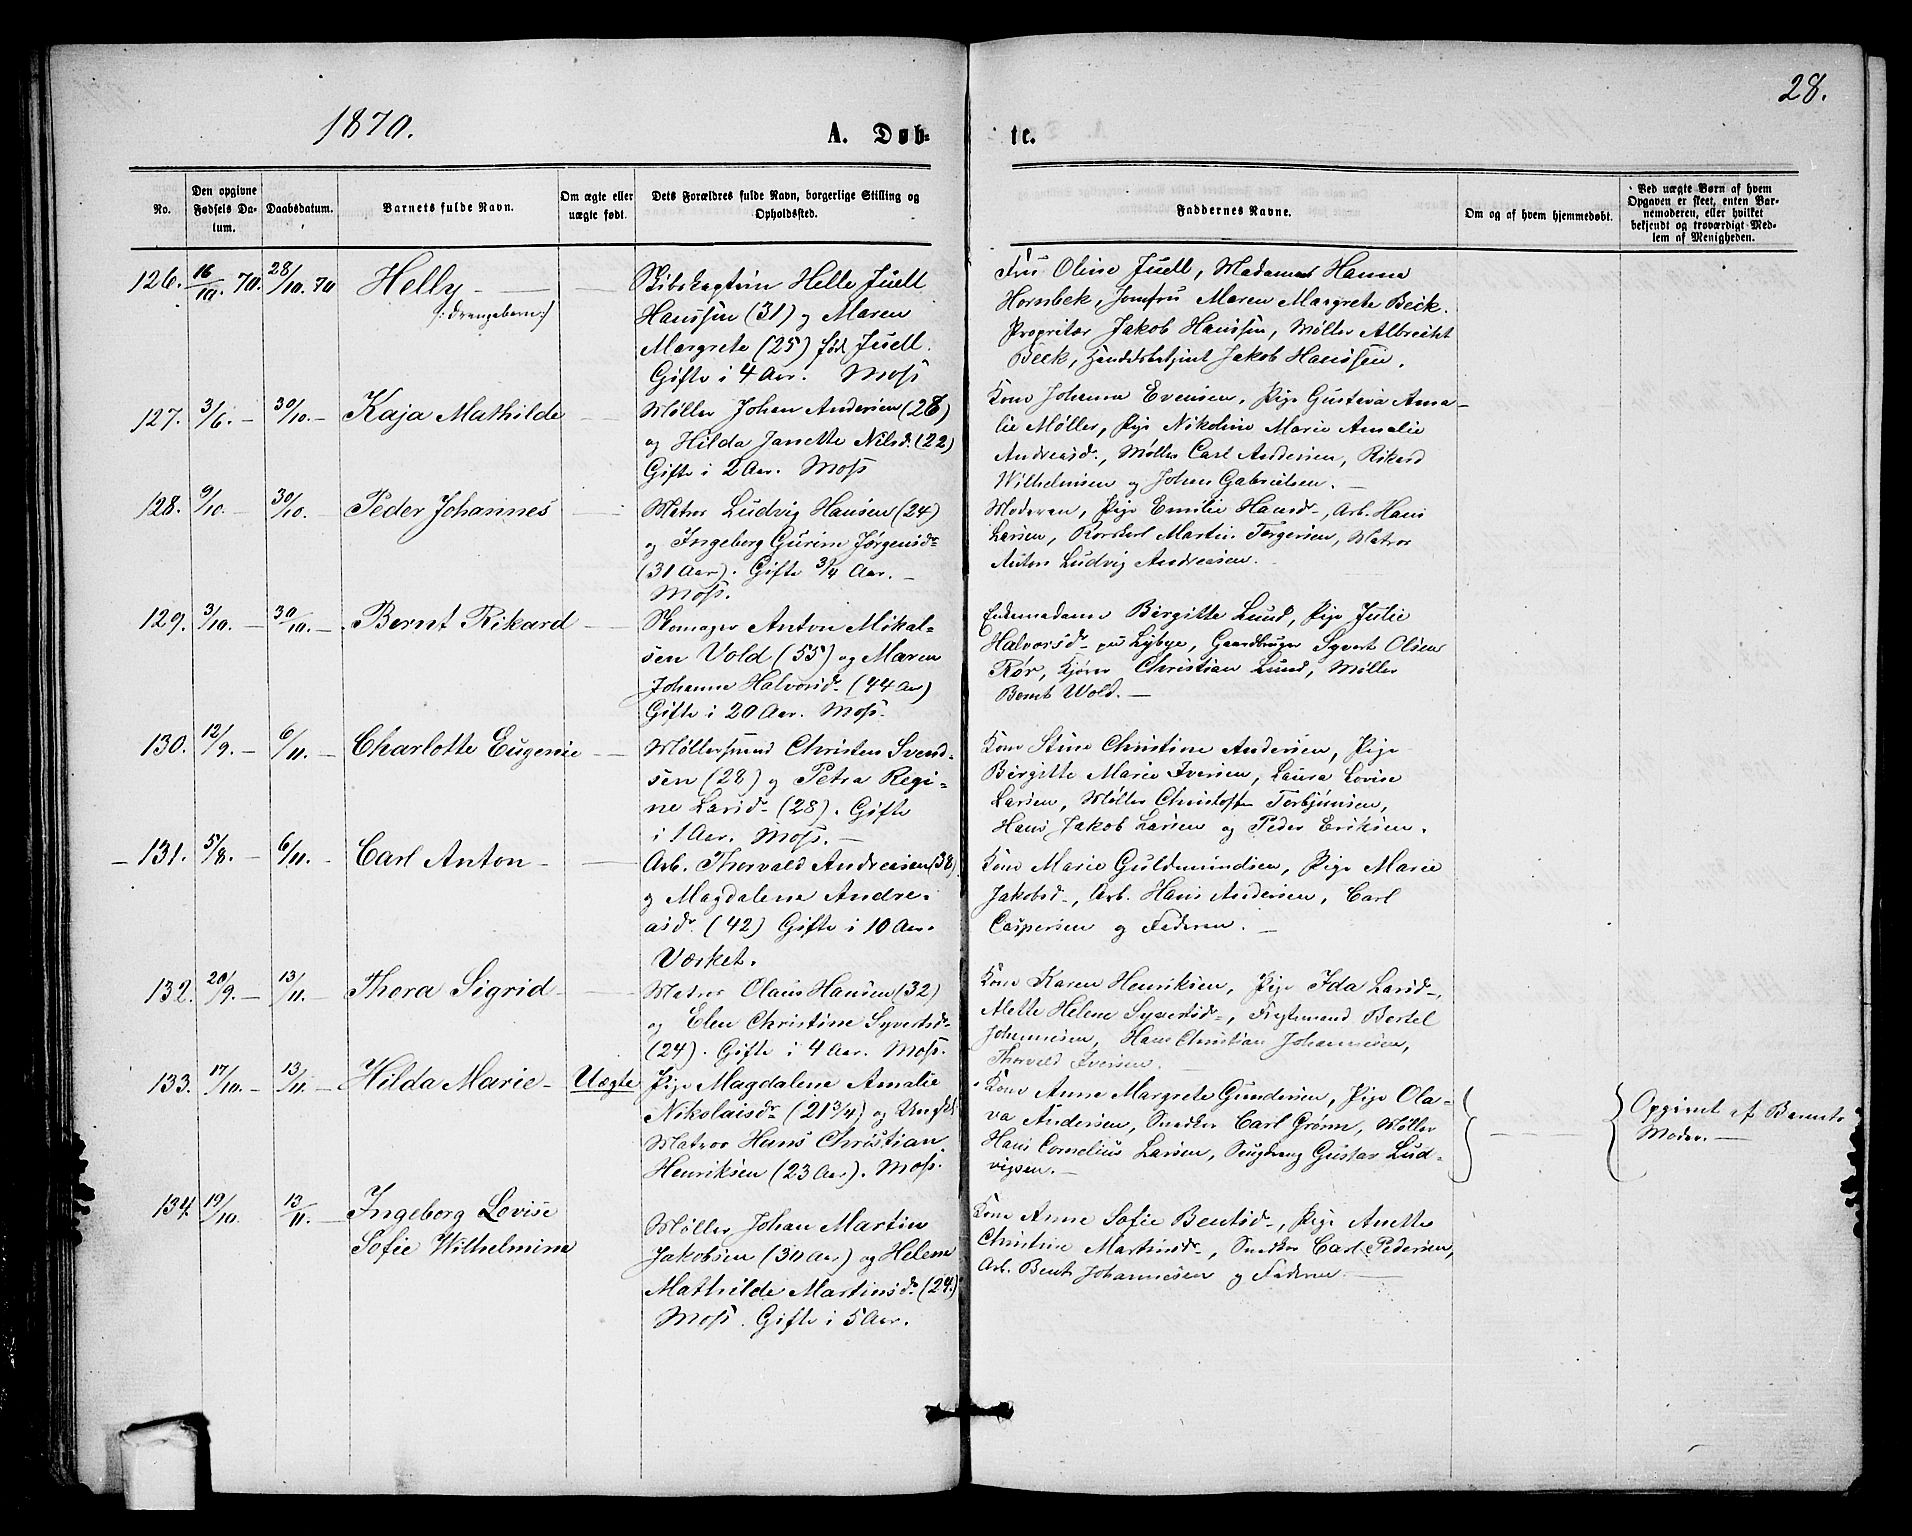 28.
1870.
A. Døb-
te.
No.
Den opgivne
Fødsels Da-
tum.
Daabsdatum.
Barnets fulde Navn.
Om ægte eller
uægte født.
Dets Forældres fulde Navn, borgerlige Stilling og
Opholdssted.
Faddernes Navne.
Om og af hvem hjemmedøbt.
Ved uægte Børn af hvem
Opgaven er skeet, enten Bar-
nemoderen, eller hvilket
bekjendt og troværdigt Med-
lem af Menigheden.
126. 16/10. 70. 28/10. 70 Helly
/: Drengebarn:/
Skibskaptein Helle Juell
Hanssen (31) og Maren
Margrete (25) fød Juell.
Gifte i 4 Aar. Moss
Fru Oline Juell, Madame Hanna
Hornbek, Jomfru Maren Margrete Beck.
Propritær Jakob Hanssen, Møller Albrecht
Beck, Handelsbetjent Jakob Hanssen.
127. 3/6. – 30/10. – Kaja Mathilde
Møller Johan Andersen (28)
og Hilda Janette Nilsd. (22)
Gifte i 2 Aar. Moss
Kone Johanna Evensen, Pige Gustava Ama-
lie Møller, Pige Nikoline Marie Amalie
Andreasd., Møller Carl Andersen, Rikard
Wilhelmsen og Johan Gabrielsen. –
128. 9/10. – 30/10. – Peder Johannes
Matros Ludvig Hansen (24)
og Ingeborg Gurine Jørgensdr
(31 Aar). Gifte 3/4 Aar. –
Moss.
Moderen, Pige Emilie Hansd –, Arb. Hans
Larsen, Martin Torgersen, Matros
Anton Ludvig Andreasen. –
129. 3/10. – 30/10. – Bernt Rikard
Skomager Anton Mikal-
sen Vold (55) og Maren
Johanne Halvorsdr. (44 Aar)
Gifte i 20 Aar. Moss.
Enkemadame Birgitte Lund, Pige Julie
Halvorsd – paa Lybye, Gaardbruger Syvert Olsen
Rør, Kjører Christian Lund, Møller
Bernt Wold. –
130. 12/9. – 6/11. – Charlotte Eugenie
Møllersvend Christen Svend-
sen (28) og Petra Regi-
ne Larsdr (28). Gifte
i 1 Aar. Moss. –
Kone Stine Christine Andersen, Pige
Birgitte Marie Iversen, Laura Lovise
Larsen, Møller Christoffer Torbjørnsen,
Hans Jakob Larsen og Peder Eriksen.
– 131. 5/8. – 6/11. – Carl Anton –
Arb. Thorvald Andreasen (38)
og Magdalene Andre-
asdr (42) Gifte i 10 Aar.
Værket.
Kone Marie Guldmundsen, Pige Marie
Jakobsd –, Arb. Hans Andersen, Carl
Caspersen og Faderen. –
132. 20/9. – 13/11. – Thora Sigrid –
Matros Olaus Hansen (32)
og Elen Christine Syvertsdr
(24). Gifte i 4 Aar. Moss.
Kone Karen Henriksen, Pige Ida Larsd –,
Alette Helene Syvertsd –, Fragtemand Bertel
Johannesen, Hans Christian Johannesen,
Thorvald Iversen. –
133. 17/10. – 13/11. – Hilda Marie – Uægte
Pige Magdalene Amalie
Nikolaisdr (21 3/4) og Ungkl
Matros Hans Christian
Henriksen (23 Aar). Moss.
Kone Anne Margrete Gundersen, Pige Ola-
va Andersen, Snedker Carl Grønn, Møller
Hans Cornelius Larsen, Gustav Lud-
vigsen. –
Opgivet af Barnets
Moder. –
134. 19/10. 13/11. – Ingeborg Lovise
Sofie Wilhelmine
Møller Johan Martin
Jakobsen (30 Aar) og Helene
Mathilde Martinsdr (24)
Moss. Gifte i 5 Aar.
Kone Anne Sofie Bentsd –, Pige Anette
Christine Martinsdr –, Snedker Carl Pedersen,
Arb. Bent Johannesen og Faderen. –